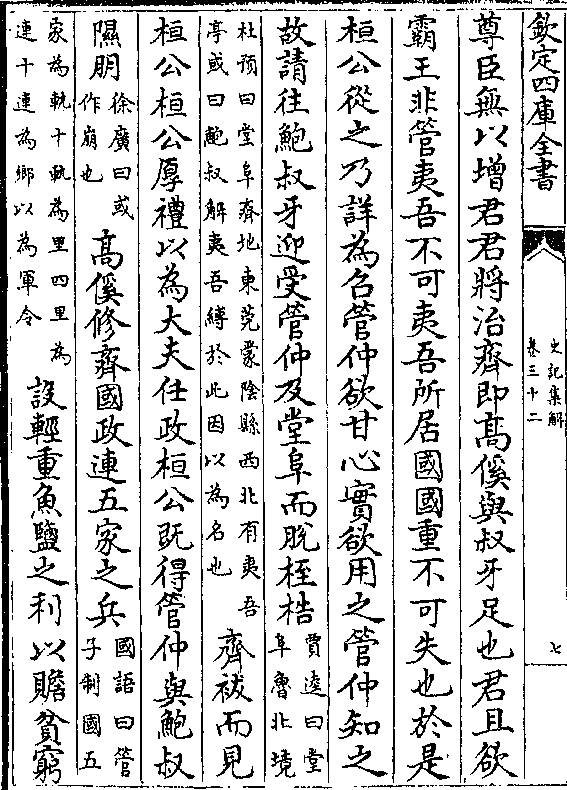 欽定四庫全書
史記集解
卷三十二
七
尊臣無以增君君將治齊即髙傒與叔牙足也君且欲
霸王非管夷吾不可夷吾所居國國重不可失也於是
桓公從之乃詳為召管仲欲甘心實欲用之管仲知之
故請往鮑叔牙迎受管仲及堂阜而脫桎梏
賈逵曰堂
阜魯北境
杜預曰堂阜齊地東莞蒙陰縣西北有夷吾
亭或曰鮑叔解夷吾縛於此因以為名也
齊祓而見
桓公桓公厚禮以為大夫任政桓公既得管仲與鮑叔
隰朋
徐廣曰或
作崩也
髙傒修齊國政連五家之兵
國語曰管
子制國五
家為軌十軌為里四里為
連十連為鄉以為軍令
設輕重魚鹽之利以贍貧窮